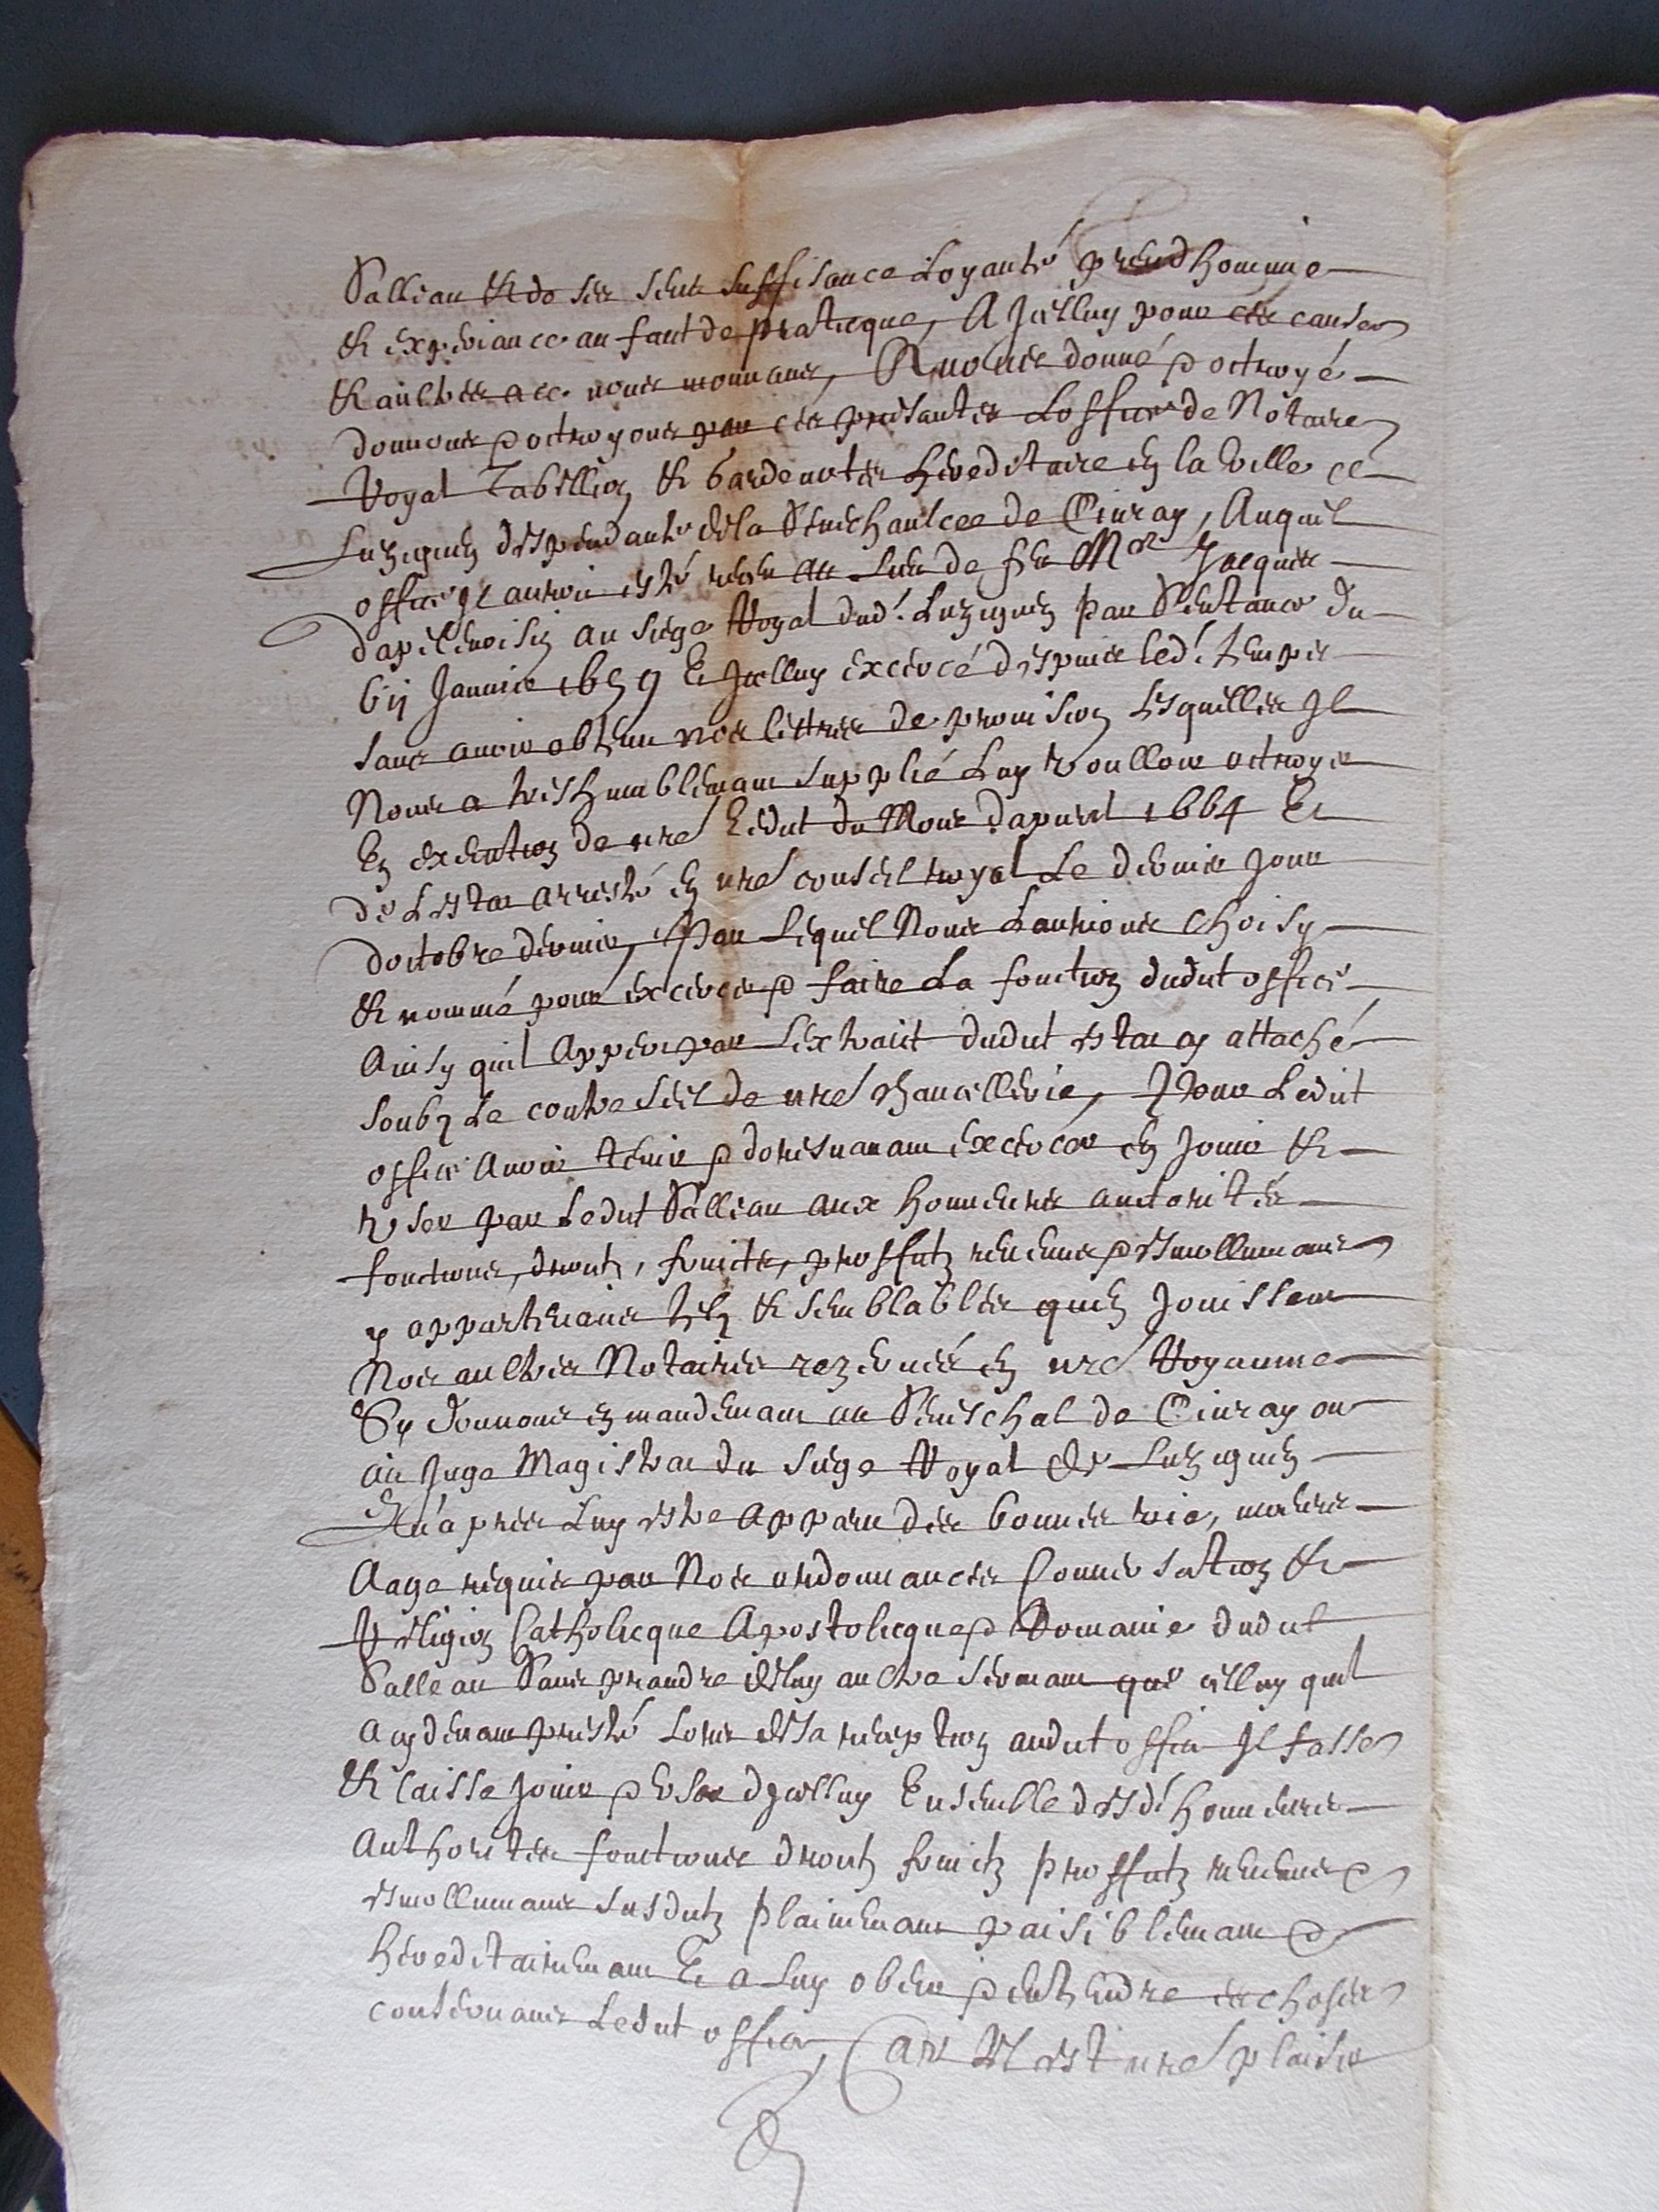 Salleau & de ses sens suffisance Loyauté preudhommie
& experiance au faut de praticque, A Jcelluy pour ces causes
& aultres a ce nous mouvans, Avons donné & octroyé
donnons & octroyons par ces presantes Loffice de Notaire
Royal Tabellion & Gardenottes hereditaire en la Ville de
Luzignen despendante de la Seneschaulcee de Civray, Auquel
office Jl auroit esté receu au Lieu de feu Mre Jacques
au siege Royal dud. Luzignen par Sentance du
vij Janvier 1659 Et Jcelluy excercé despuis led. temps
sans avoir obtenu nos lettres de provision Lesquelles Jl
Nous a tres humblemant supplié Luy voulloir octroyer
En execution de nre Edict du Mois dapvril 1664 Et
de Lestat arresté en nre conseil royal Le dernier Jour
doctobre dernier, Par Lequel Nous Laurions choisy
& nommé pour excercer & faire La fonction dudict office
Ainsy quil Appert par Lextraict dudict estat cy attaché
soubz Le contre seel de nre chancellerie, Pour Ledict
office Avoir tenir & doresnavant excercer en Jouir &
user par Ledict Salleau aux honneurs auctorités
fonctions, droictz, fruictz, proffictz revenus & esmollumans
y appartenans telz & semblables quen Jouissent
Nos aultres Notaires rezervés en nre Royaume
Sy donnons en mandemant au Seneschal de Civray ou
au Juge Magistrat du siege Royal de Luzignen
Qua pres Luy estre Apparu des bonnes vie, mœurs
Aage requis par Nos ordonnances Conversation &
Religion Catholicque Apostolicque & Romaine dudict
Salleau Sans prandre de luy aultre sermant que celluy quil
a cy devant presté Lors de sa reception audict office Jl fasse
& laisse Jouir & user dJcelluy Ensemble desd. honneurs
Authorités fonctions droictz fruictz proffictz revenus &
esmollumans susdictz plainemant paisiblemant &
hereditairemant Et a Luy obeir & entendre es choses
concernans Ledict office, Car tel est nre plaisir